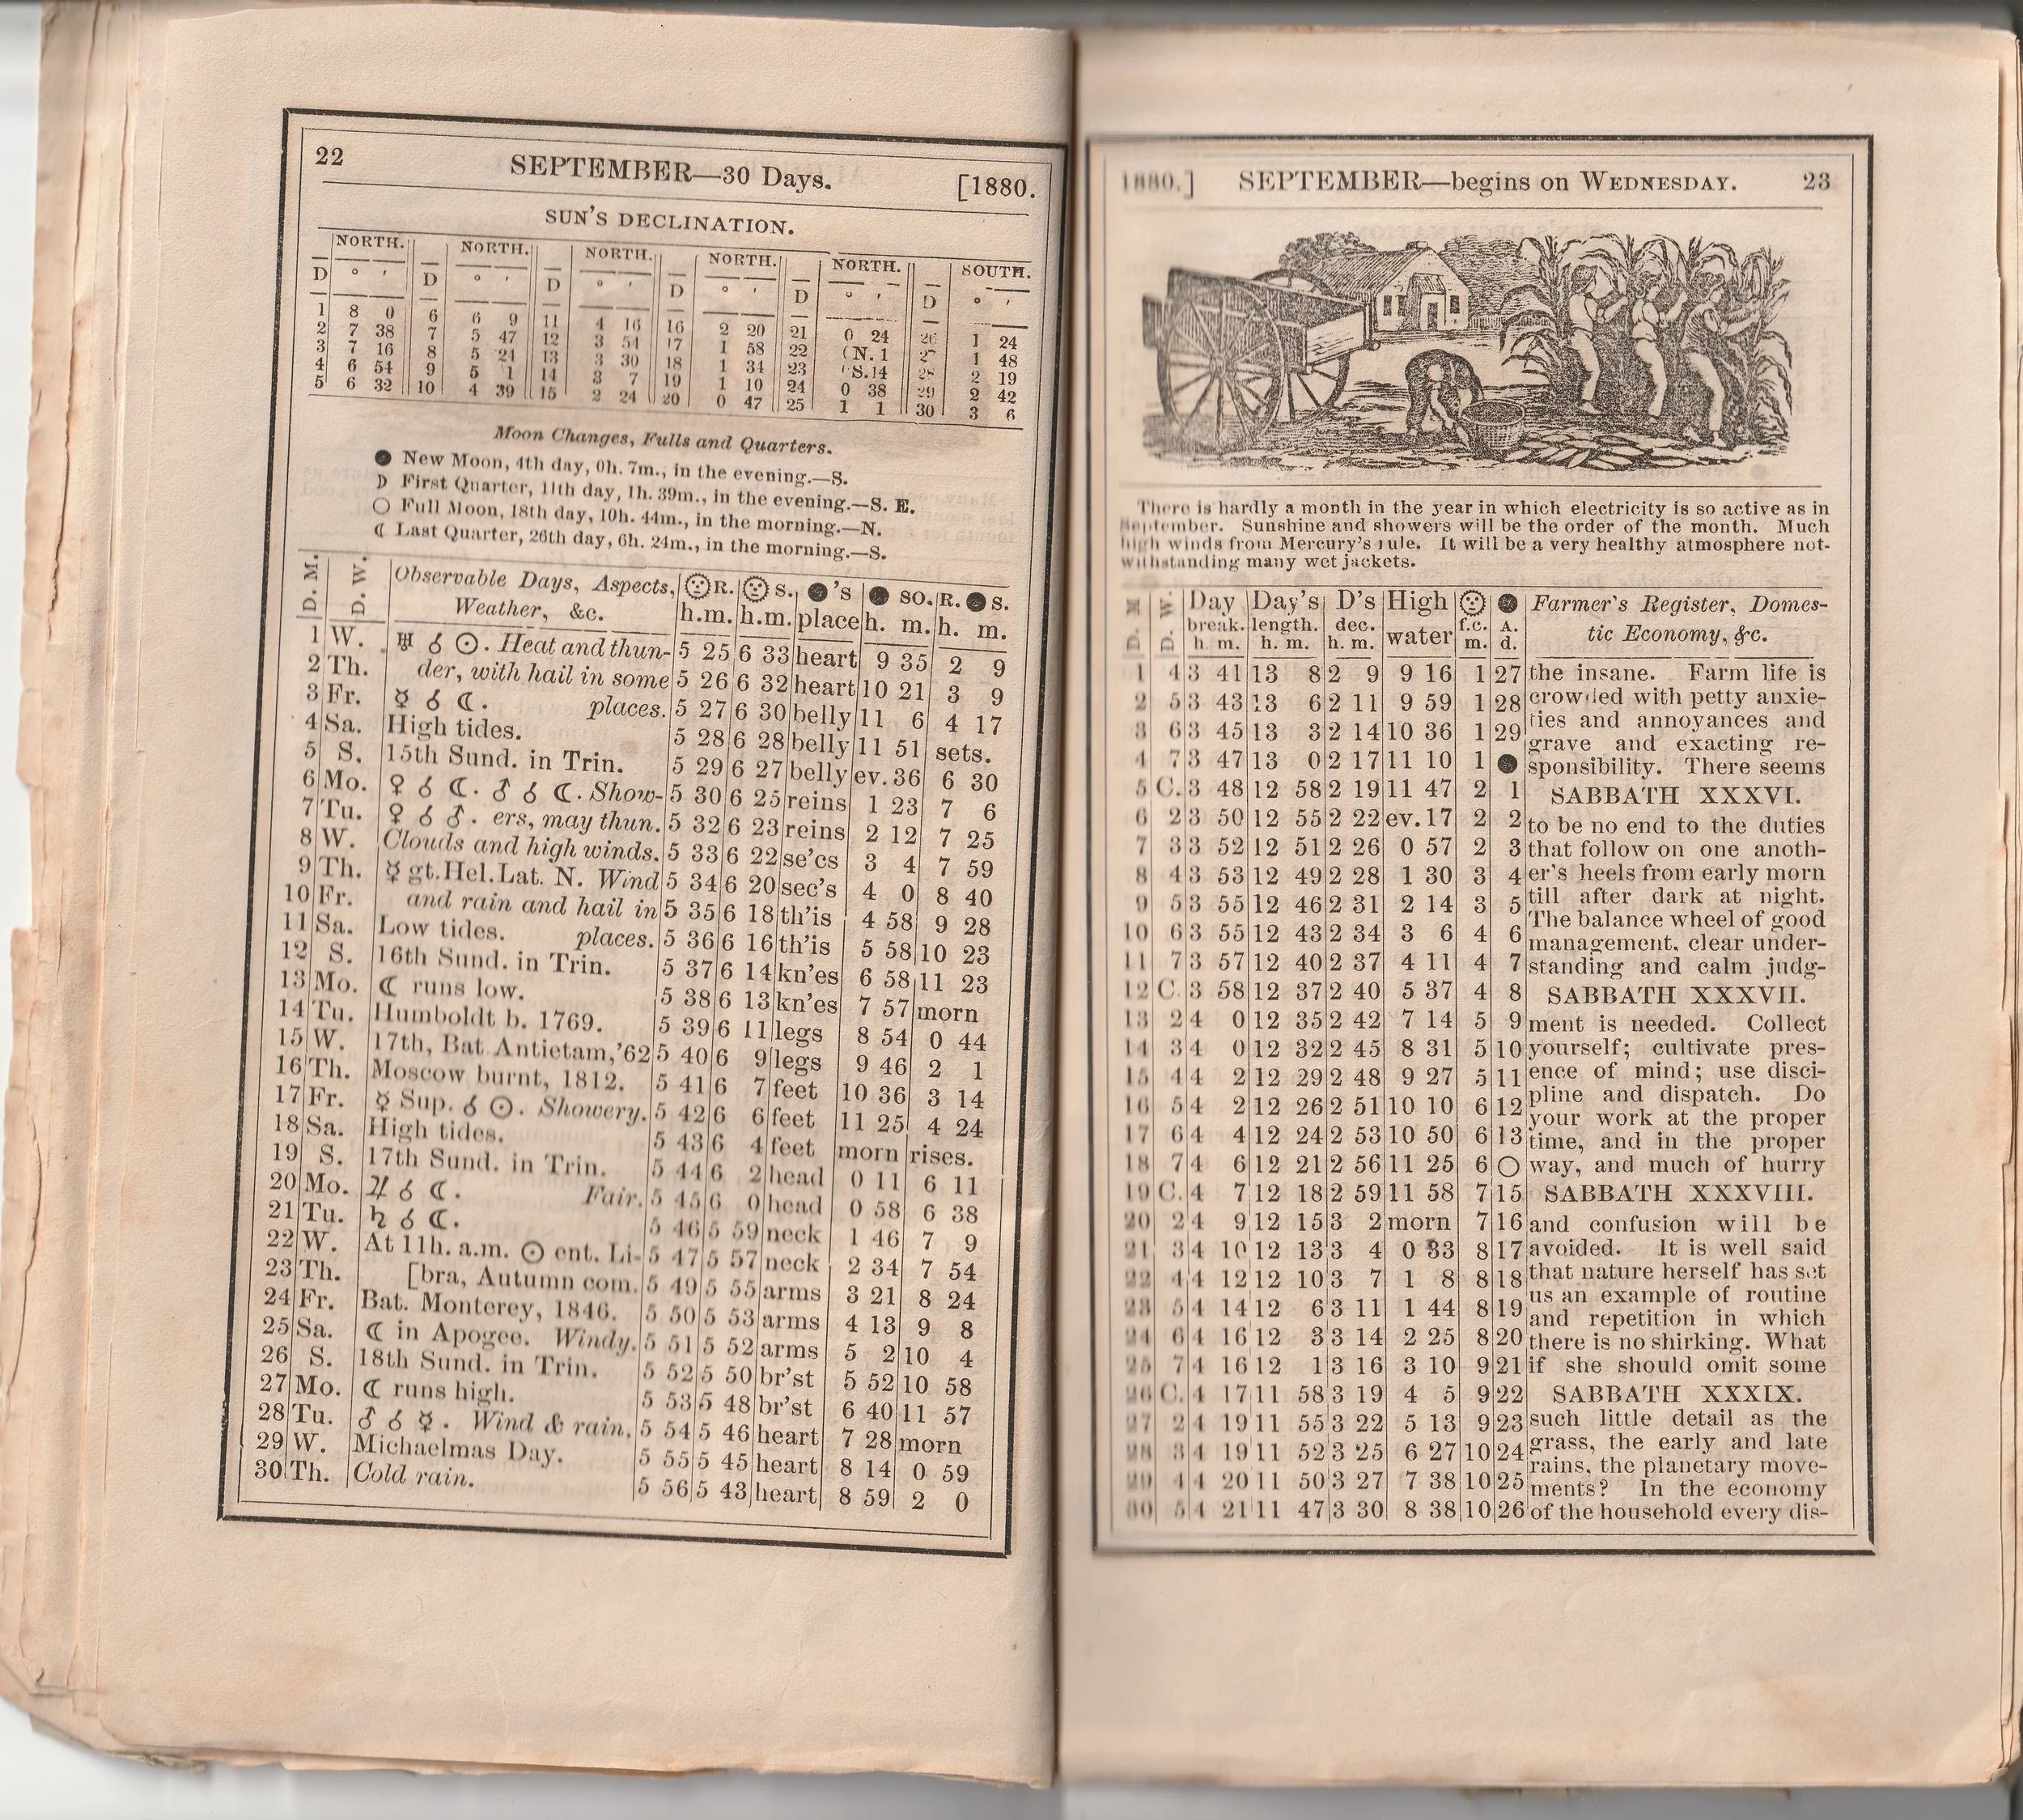 22 SEPTEMBER—30 Days. [1880.
SUN'S DECLINATION.
NORTH. NORTH. NORTH. NORTH. NORTH. SOUTH.
D ° ' D ° ' D ° ' D ° ' D ° ' D ° '
1 8 0 6 6 9 11 4 16 16 2 20 21 0 24 26 1 24
2 7 38 7 5 47 12 3 54 17 1 58 22 (N. 1 27 1 48
3 7 16 8 5 24 13 3 30 18 1 34 23 S. 14 28 2 19
4 6 54 9 5 1 14 3 7 19 1 10 24 0 38 29 2 42
5 6 32 10 4 39 15 2 24 20 0 47 25 1 1 30 3 6
Moon Changes, Fulls and Quarters.
● New Moon, 4th day, 0h. 7m., in the evening.—S.
☽ First Quarter, 11th day, 1h. 39m., in the evening.—S. E.
○ Full Moon, 18th day, 10h. 44m., in the morning.—N.
☾ Last Quarter, 26th day, 6h. 24m., in the morning.—S.
D. M. D. W. Observable Days, Aspects, ☉R. ☉S. ●'s ● so. R. ● S.
Weather, &c. h.m. h.m. place h. m. h. m.
1 W. ♅ ☌ ☉. Heat and thun- 5 25 6 33 heart 9 35 2 9
2 Th. der, with hail in some 5 26 6 32 heart 10 21 3 9
3 Fr. ☿ ☌ ☾. places. 5 27 6 30 belly 11 6 4 17
4 Sa. High tides. 5 28 6 28 belly 11 51 sets.
5 S. 15th Sund. in Trin. 5 29 6 27 belly ev. 36 6 30
6 Mo. ♀ ☌ ☾. ♂ ☌ ☾. Show- 5 30 6 25 reins 1 23 7 6
7 Tu. ♀ ☌ ♂. ers, may thun. 5 32 6 23 reins 2 12 7 25
8 W. Clouds and high winds. 5 33 6 22 se'cs 3 4 7 59
9 Th. ☿ gt. Hel. Lat. N. Wind 5 34 6 20 sec's 4 0 8 40
10 Fr. and rain and hail in 5 35 6 18 th'is 4 58 9 28
11 Sa. Low tides. places. 5 36 6 16 th'is 5 58 10 23
12 S. 16th Sund. in Trin. 5 37 6 14 kn'es 6 58 11 23
13 Mo. ☾ runs low. 5 38 6 13 kn'es 7 57 morn
14 Tu. Humboldt b. 1769. 5 39 6 11 legs 8 54 0 44
15 W. 17th, Bat. Antietam, '62 5 40 6 9 legs 9 46 2 1
16 Th. Moscow burnt, 1812. 5 41 6 7 feet 10 36 3 14
17 Fr. ☿ Sup. ☌ ☉. Showery. 5 42 6 6 feet 11 25 4 24
18 Sa. High tides. 5 43 6 4 feet morn rises.
19 S. 17th Sund. in Trin. 5 44 6 2 head 0 11 6 11
20 Mo. ♃ ☌ ☾. Fair. 5 45 6 0 head 0 58 6 38
21 Tu. ♄ ☌ ☾. 5 46 5 59 neck 1 46 7 9
22 W. At 11h. a.m. ☉ ent. Li- 5 47 5 57 neck 2 34 7 54
23 Th. [bra, Autumn com. 5 49 5 55 arms 3 21 8 24
24 Fr. Bat. Monterey, 1846. 5 50 5 53 arms 4 13 9 8
25 Sa. ☾ in Apogee. Windy. 5 51 5 52 arms 5 2 10 4
26 S. 18th Sund. in Trin. 5 52 5 50 br'st 5 52 10 58
27 Mo. ☾ runs high. 5 53 5 48 br'st 6 40 11 57
28 Tu. ♂ ☌ ☿. Wind & rain. 5 54 5 46 heart 7 28 morn
29 W. Michaelmas Day. 5 55 5 45 heart 8 14 0 59
30 Th. Cold rain. 5 56 5 43 heart 8 59 2 0
1880.] SEPTEMBER—begins on WEDNESDAY. 23
There is hardly a month in the year in which electricity is so active as in
September. Sunshine and showers will be the order of the month. Much
high winds from Mercury's rule. It will be a very healthy atmosphere not-
withstanding many wet jackets.
D. M. D. W. Day Day's D's High ☉ ● Farmer's Register, Domes-
break. length. dec. water f.c. A. tic Economy, &c.
h. m. h. m. h. m. m. d.
1 4 3 41 13 8 2 9 9 16 1 27 the insane. Farm life is
2 5 3 43 13 6 2 11 9 59 1 28 crowded with petty anxie-
ties and annoyances and
3 6 3 45 13 3 2 14 10 36 1 29 grave and exacting re-
4 7 3 47 13 0 2 17 11 10 1 ● sponsibility. There seems
5 C. 3 48 12 58 2 19 11 47 2 1 SABBATH XXXVI.
6 2 3 50 12 55 2 22 ev. 17 2 2 to be no end to the duties
7 3 3 52 12 51 2 26 0 57 2 3 that follow on one anoth-
8 4 3 53 12 49 2 28 1 30 3 4 er's heels from early morn
9 5 3 55 12 46 2 31 2 14 3 5 till after dark at night.
The balance wheel of good
10 6 3 55 12 43 2 34 3 6 4 6 management, clear under-
11 7 3 57 12 40 2 37 4 11 4 7 standing and calm judg-
12 C. 3 58 12 37 2 40 5 37 4 8 SABBATH XXXVII.
13 2 4 0 12 35 2 42 7 14 5 9 ment is needed. Collect
14 3 4 0 12 32 2 45 8 31 5 10 yourself; cultivate pres-
15 4 4 2 12 29 2 48 9 27 5 11 ence of mind; use disci-
16 5 4 2 12 26 2 51 10 10 6 12 pline and dispatch. Do
your work at the proper
17 6 4 4 12 24 2 53 10 50 6 13 time, and in the proper
18 7 4 6 12 21 2 56 11 25 6 ○ way, and much of hurry
19 C. 4 7 12 18 2 59 11 58 7 15 SABBATH XXXVIII.
20 2 4 9 12 15 3 2 morn 7 16 and confusion will be
21 3 4 10 12 13 3 4 0 33 8 17 avoided. It is well said
22 4 4 12 12 10 3 7 1 8 8 18 that nature herself has set
23 5 4 14 12 6 3 11 1 44 8 19 us an example of routine
and repetition in which
24 6 4 16 12 3 3 14 2 25 8 20 there is no shirking. What
25 7 4 16 12 1 3 16 3 10 9 21 if she should omit some
26 C. 4 17 11 58 3 19 4 5 9 22 SABBATH XXXIX.
27 2 4 19 11 55 3 22 5 13 9 23 such little detail as the
28 3 4 19 11 52 3 25 6 27 10 24 grass, the early and late
rains, the planetary move-
29 4 4 20 11 50 3 27 7 38 10 25 ments? In the economy
30 5 4 21 11 47 3 30 8 38 10 26 of the household every dis-